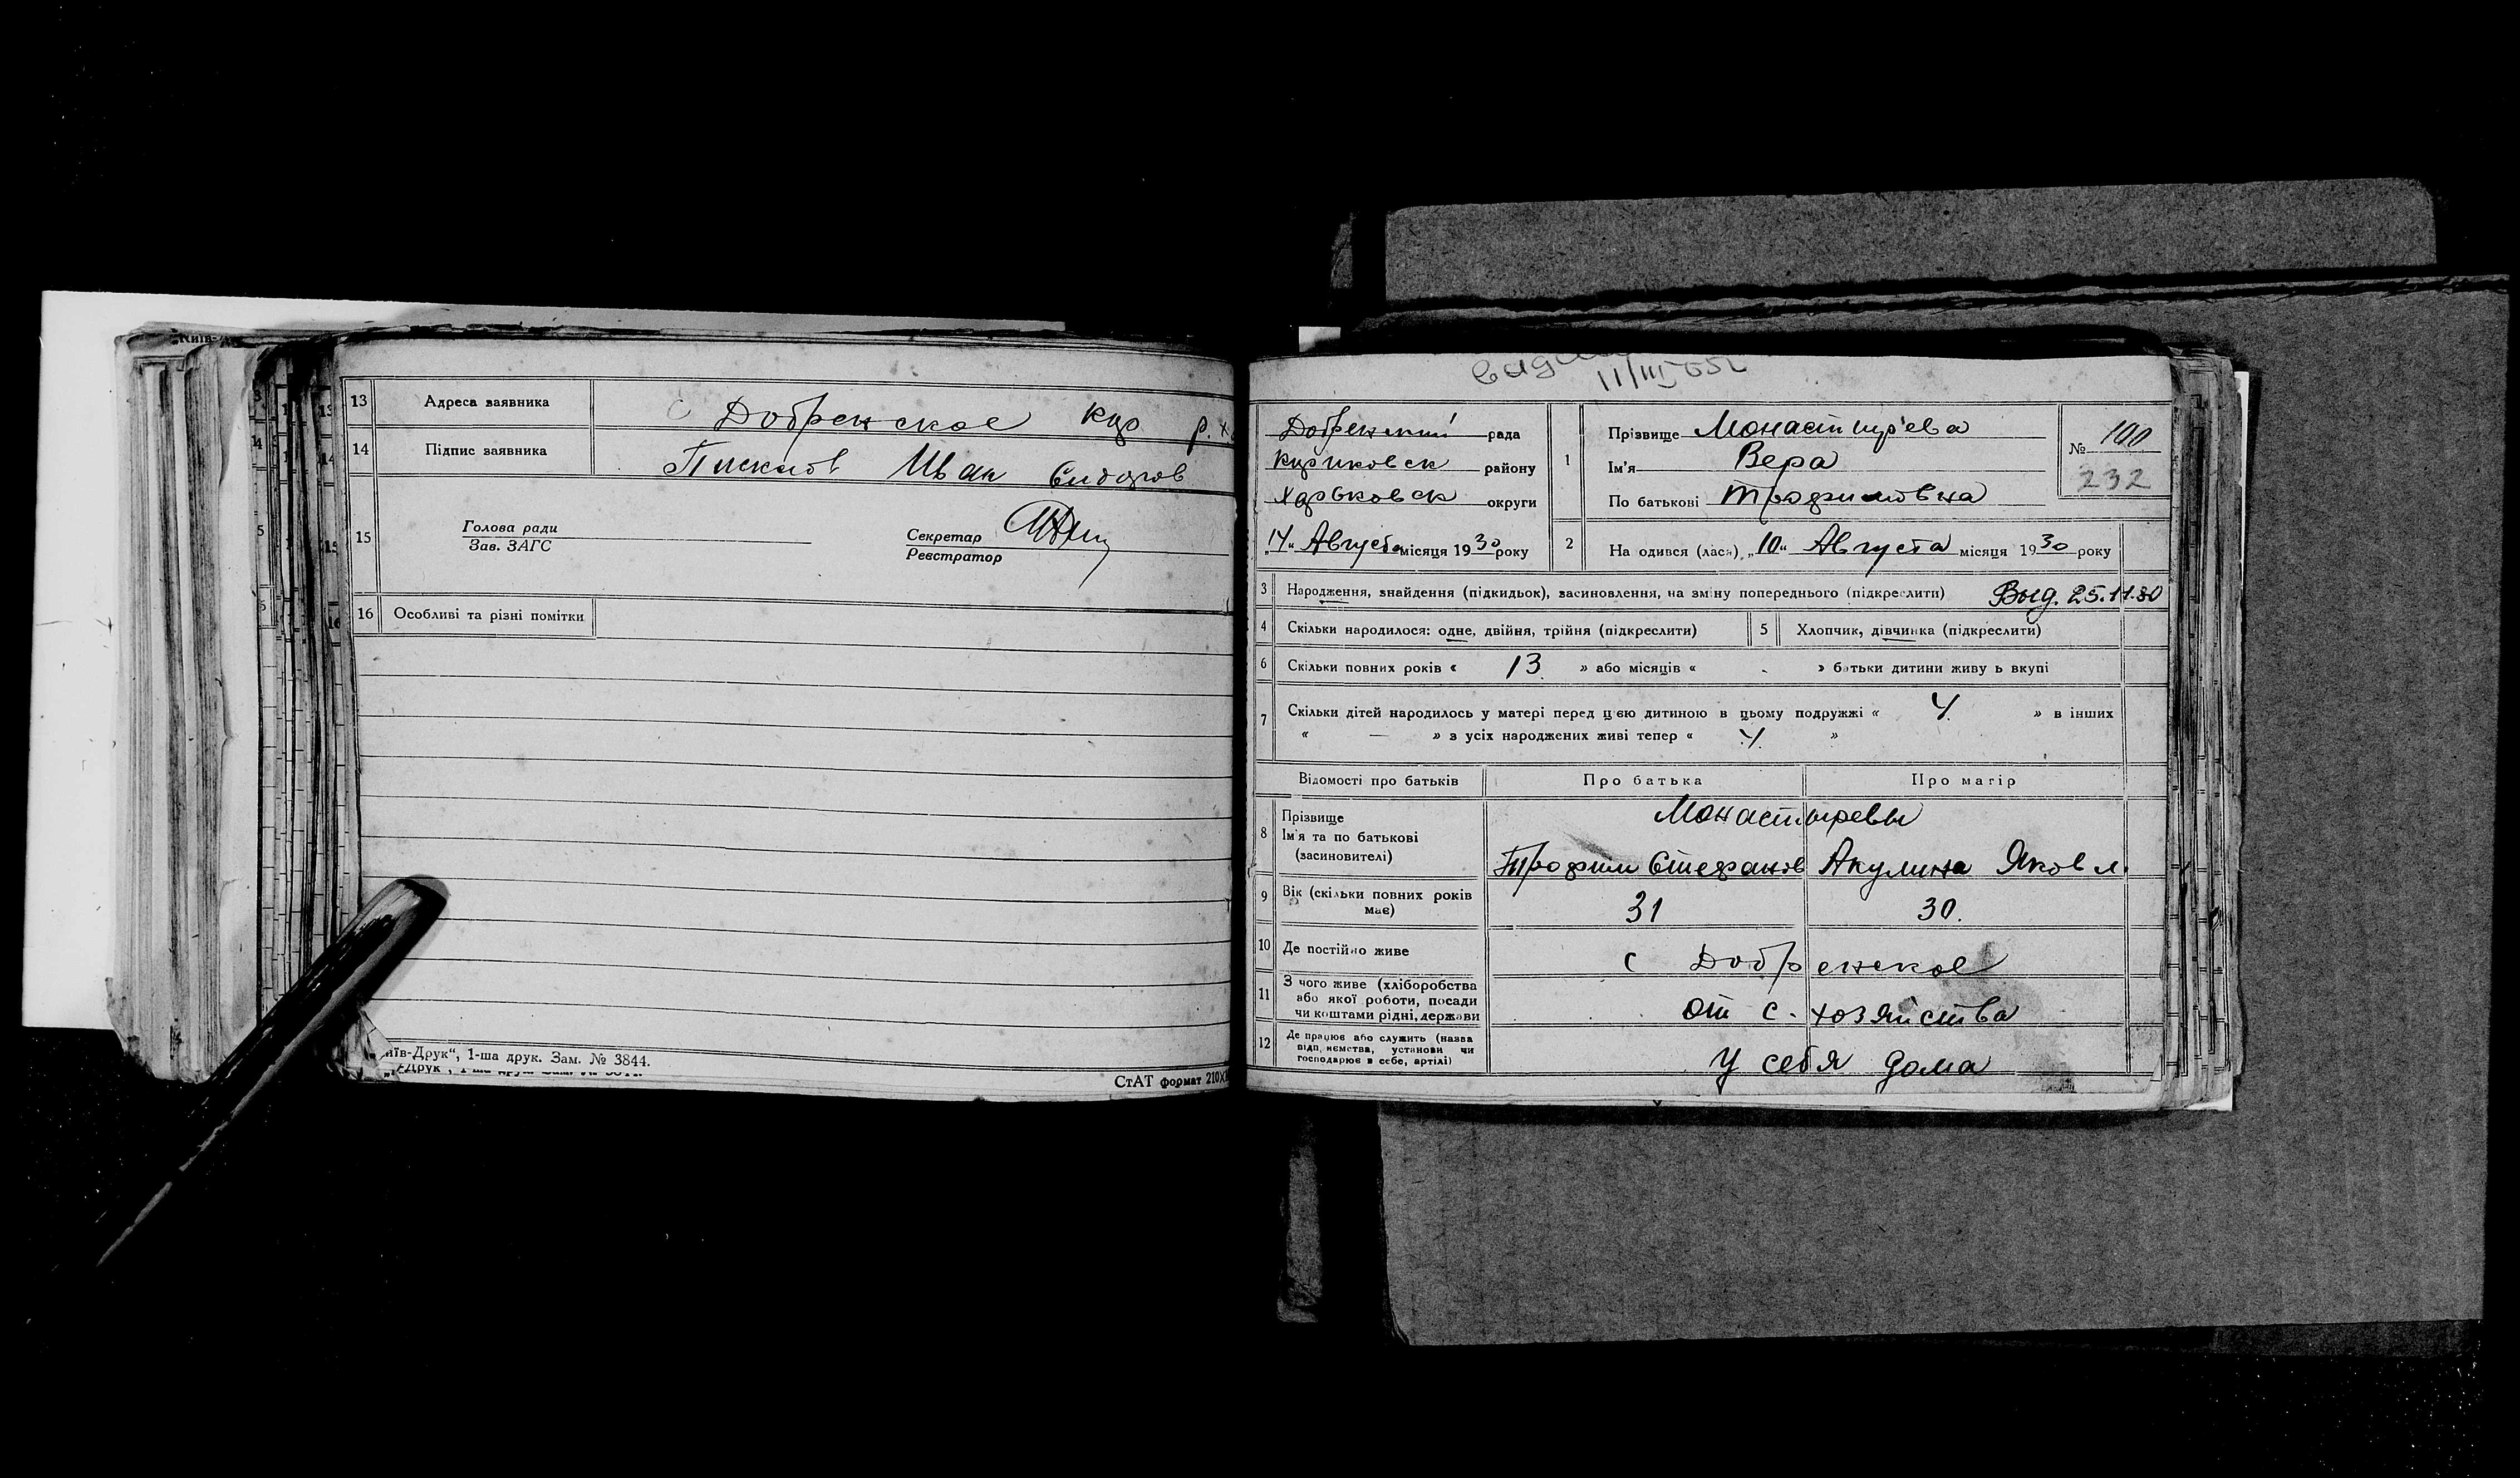 13 Адреса заявника с Добренское Кур р. х
14 Підпис заявника Пискнов Иван Сидоров
15 Голова ради
Зав. ЗАГС
Секретар
Реєстратор
16 Особливі та різні помітки
иїв-Друк“, 1-ша друк. Зам. № 3844.
СтАТ формат 210
11/III
Добренский рада
Куриковск району
Харьковск округи
„14“ Августа місяця 1930 року
1 Прізвище Монастыр'ева
Ім'я Вера
По батькові Трофимовна
№ 100
232
2 На одився (лась) „10“ Августа місяця 1930 року
3 Народження, знайдення (підкидьок), засиновлення, на зміну попереднього (підкреслити) Выд. 25.11.80
4 Скільки народилося: одне, двійня, трійня (підкреслити) 5 Хлопчик, дівчинка (підкреслити)
6 Скільки повних років « 13 » або місяців « - » батьки дитини живу ь вкупі
7 Скільки дітей народилось у матері перед цією дитиною в цьому подружжі « 4. » в інших
« — » з усіх народжених живі тепер « 4. »
Відомості про батьків Про батька Про матір
8 Прізвище Монастыревы
Ім'я та по батькові
(засиновителі) Трофим Стефанов Акулина Яковл.
9 Вік (скільки повних років має) 31 30.
10 Де постійно живе с Добренское
11 З чого живе (хліборобства
або якої роботи, посади
чи коштами рідні, держави от с. хозяйства
12 Де працює або служить (назва
підприємства, установи чи
господарює в себе, артілі) У себя дома